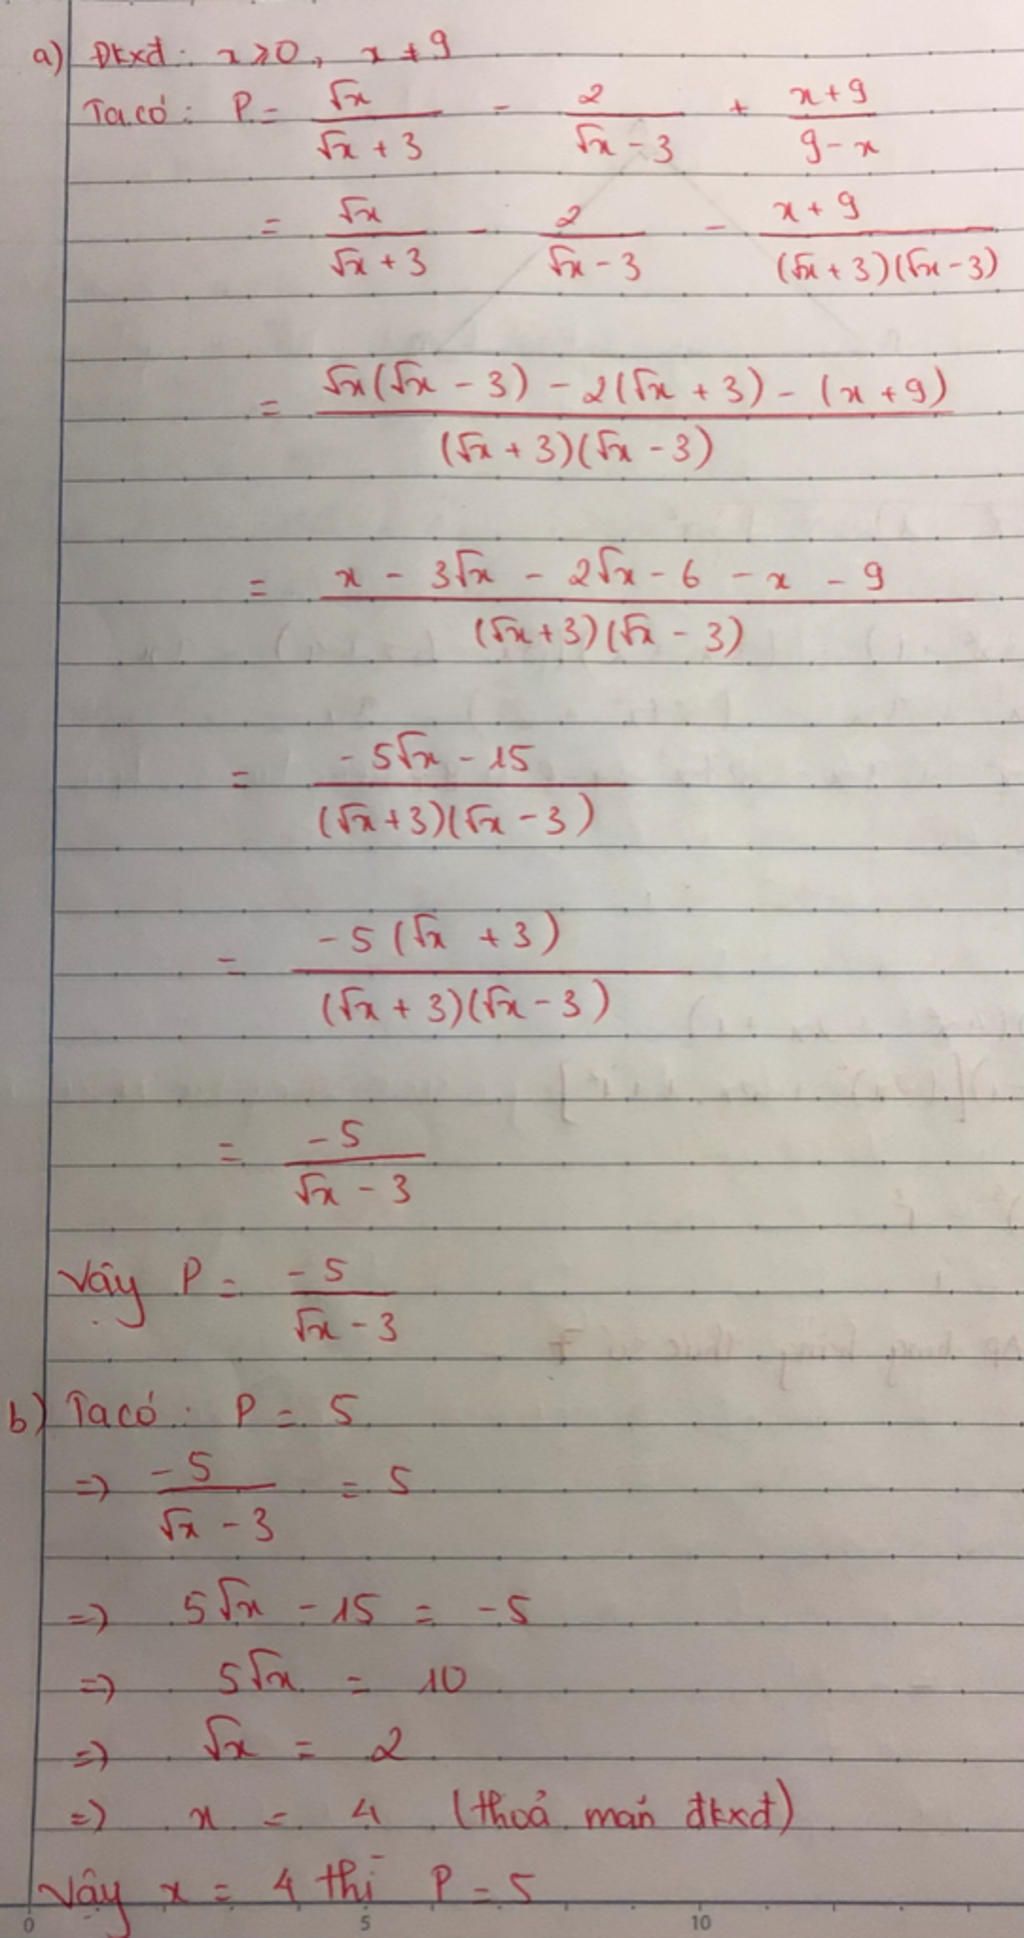 a) Đkxđ: x ≥ 0, x ≠ 9
Ta có: P = √x / (√x + 3) - 2 / (√x - 3) + (x + 9) / (9 - x)
= √x / (√x + 3) - 2 / (√x - 3) - (x + 9) / ((√x + 3)(√x - 3))
= (√x(√x - 3) - 2(√x + 3) - (x + 9)) / ((√x + 3)(√x - 3))
= (x - 3√x - 2√x - 6 - x - 9) / ((√x + 3)(√x - 3))
= (-5√x - 15) / ((√x + 3)(√x - 3))
= -5(√x + 3) / ((√x + 3)(√x - 3))
= -5 / (√x - 3)
Vậy P = -5 / (√x - 3)
b) Ta có: P = 5
=> -5 / (√x - 3) = 5
=> 5√x - 15 = -5
=> 5√x = 10
=> √x = 2
=> x = 4 (thoả mãn đkxđ)
Vậy x = 4 thì P = 5
0 5 10